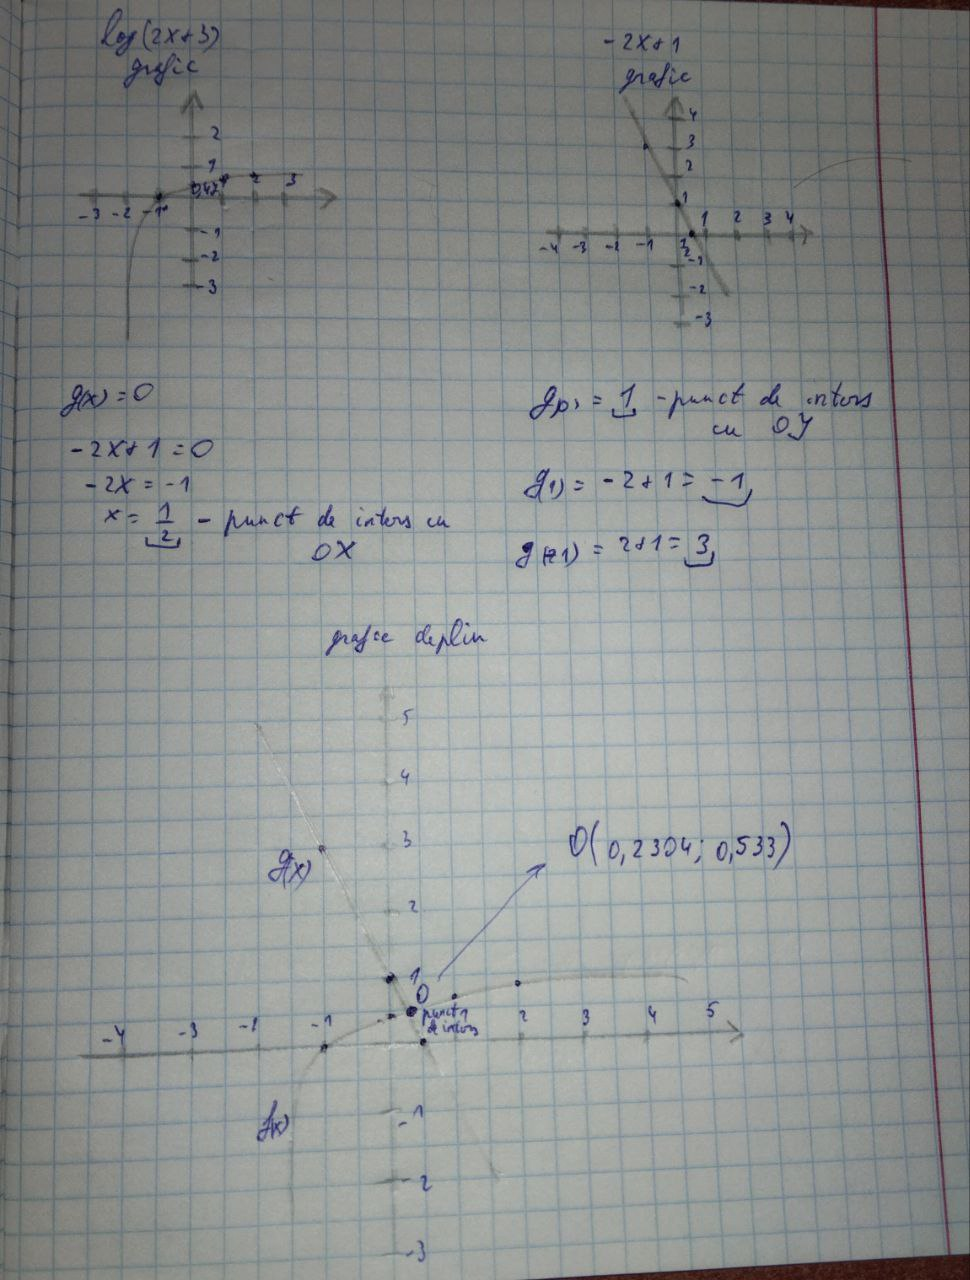 log(2x+3)
grafic
2
1
0,47
1
2
3
-3
-2
-1
-1
-2
-3
-2x+1
grafic
4
3
2
1
1
2
3
4
-4
-3
-2
-1
1/2
-1
-2
-3
g(x) = 0
-2x+1 = 0
-2x = -1
x = 1/2 - punct de inters cu
OX
g(0) = 1 - punct de inters
cu OY
g(1) = -2+1 = -1
g(-1) = 2+1 = 3
grafic deplin
5
4
3
O(0,2304; 0,533)
g(x)
2
1
O
punct
de inters
-4
-3
-2
-1
1
2
3
4
5
f(x)
-1
-2
-3